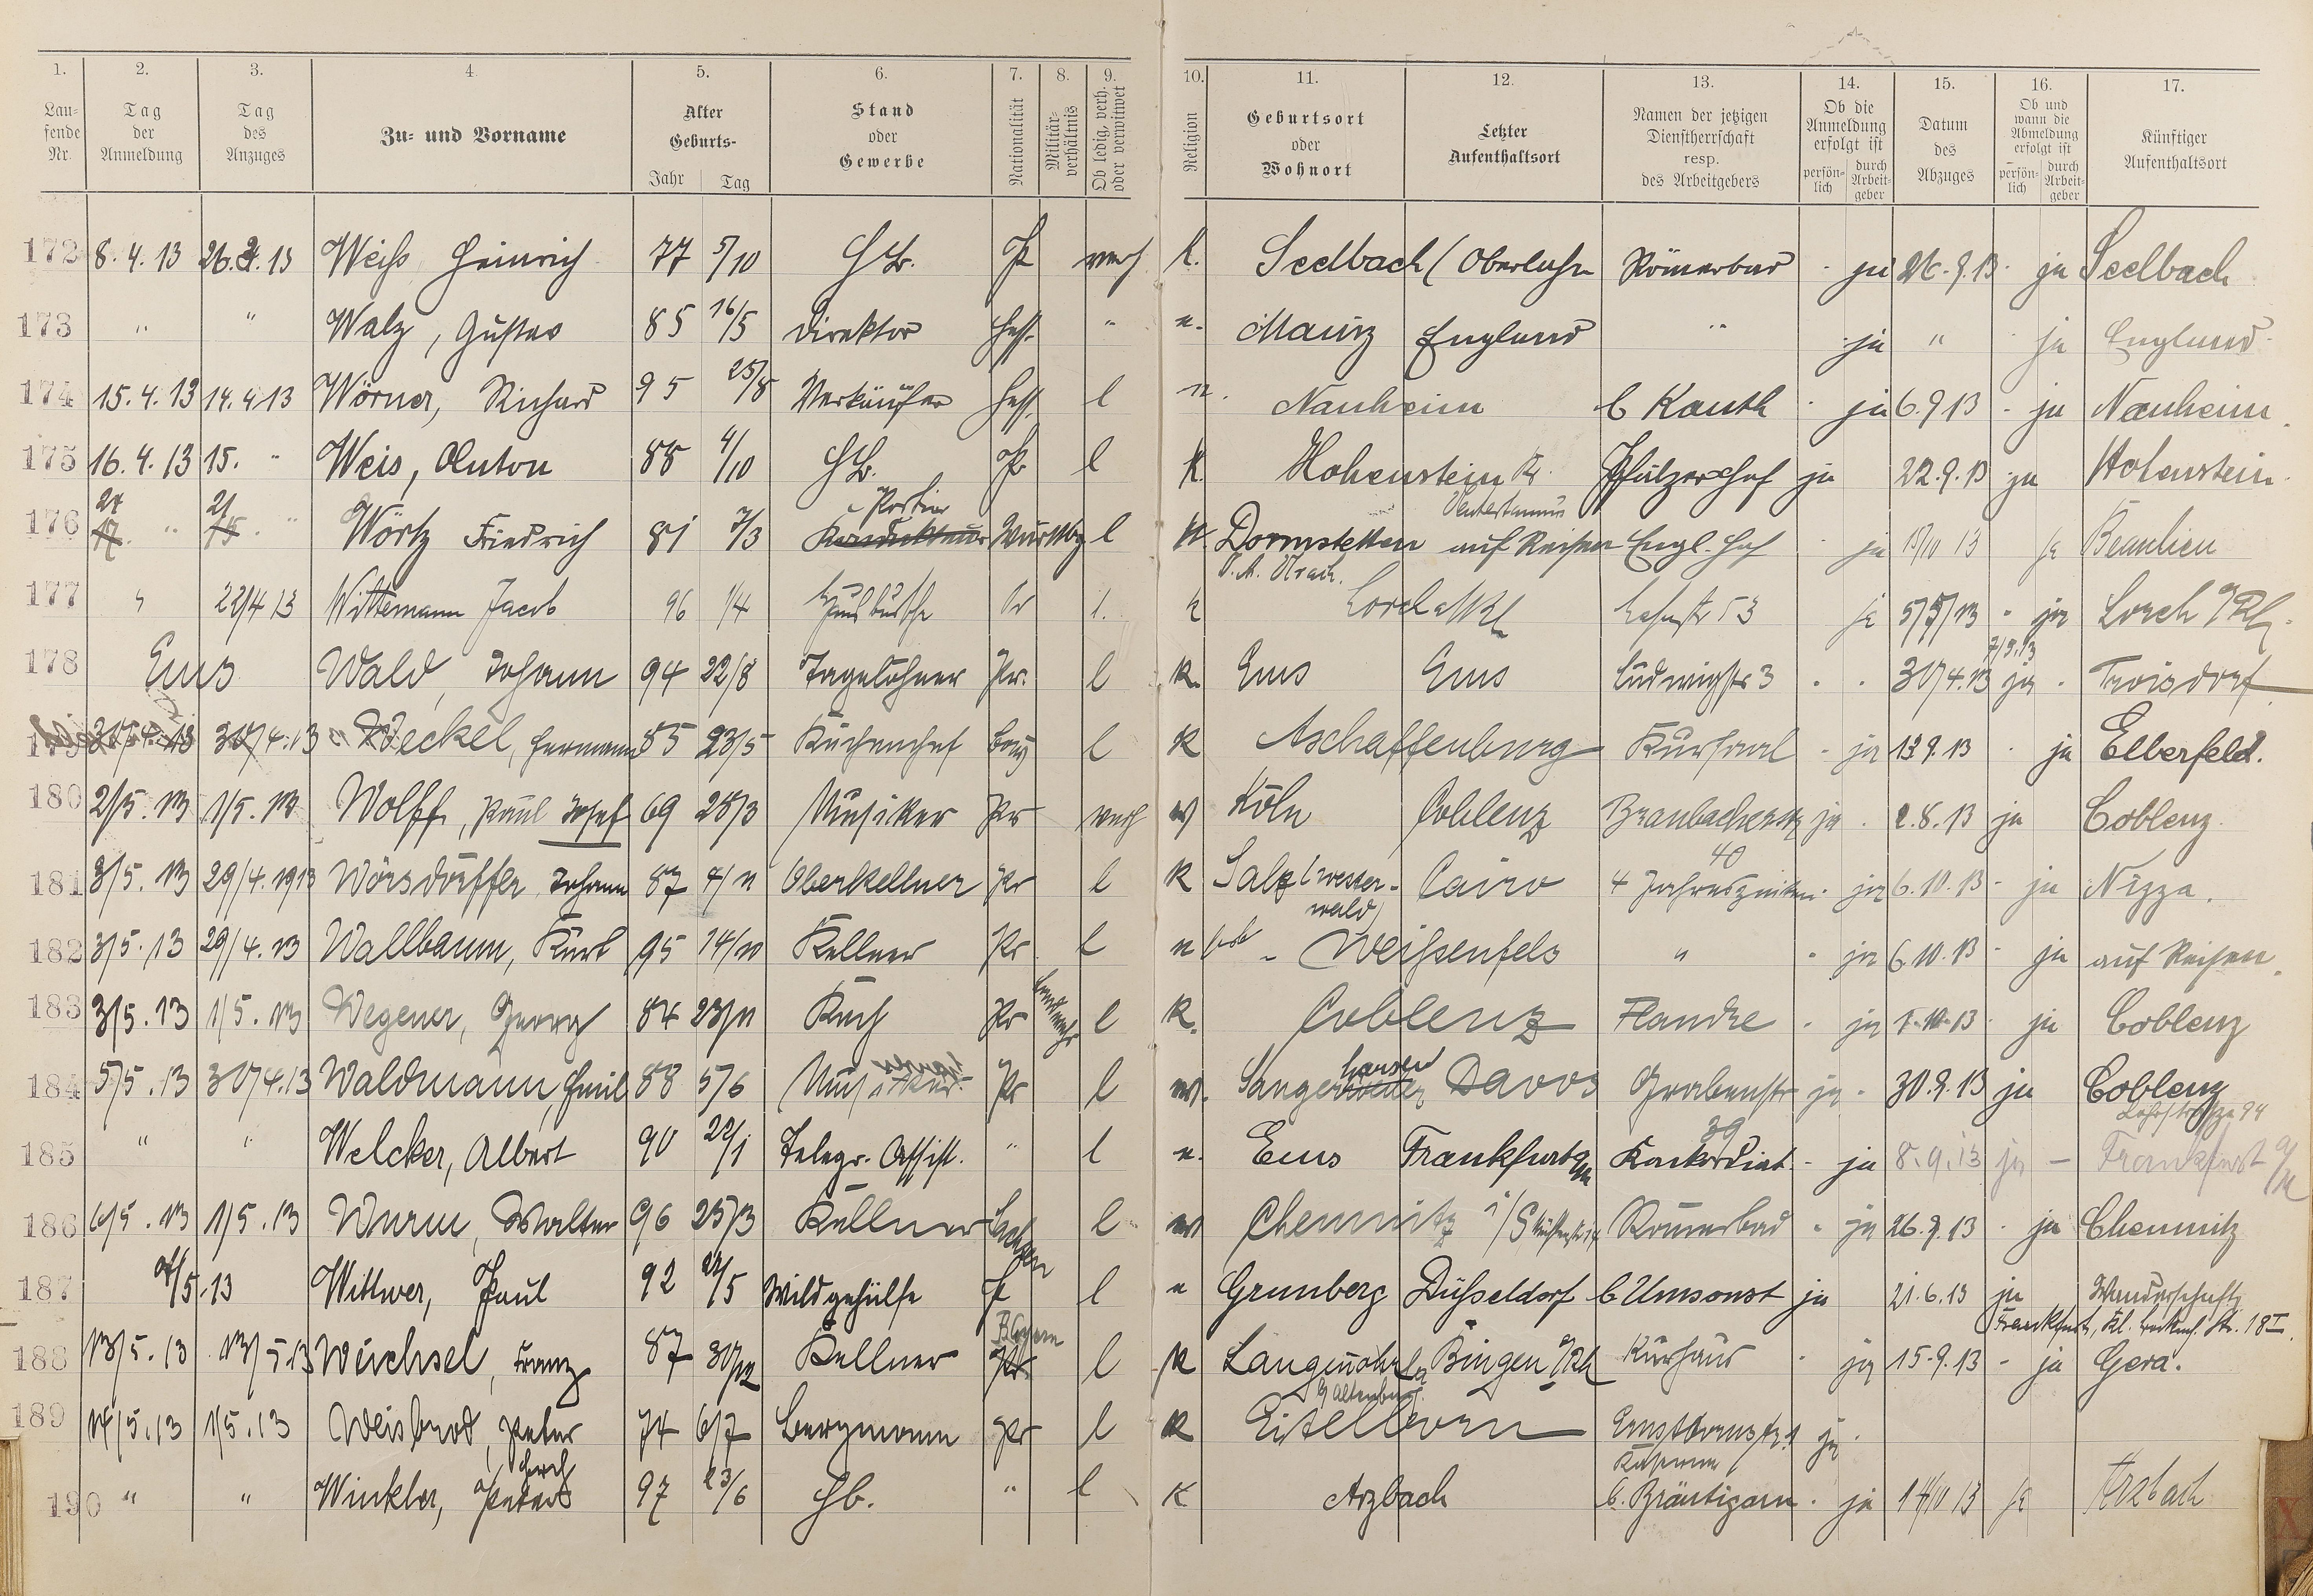 1. 2. 3. 4. 5. 6. 7. 8. 9. 10. 11. 12. 13. 14. 15. 16. 17.
Lau-fende Nr. Tag der Anmeldung Tag des Anzuges Zu- und Vorname Alter Geburts- Jahr Tag Stand oder Gewerbe Nationalität Militär-verhältnis Ob ledig, verh. oder verwitwet Religion Geburtsort oder Wohnort Letzter Aufenthaltsort Namen der jetzigen Dienstherrschaft resp. des Arbeitgebers Ob die Anmeldung erfolgt ist persön-lich durch Arbeit-geber Datum des Abzuges Ob und wann die Abmeldung erfolgt ist persön-lich durch Arbeit-geber Künftiger Aufenthaltsort
172 8.4.13 26.3.13 Weiß Heinrich 77 5/10 Hb. P verh k. Seelbach (Oberlahn Römerbad - ja 26.9.13 - ja Seelbach
173 " " Walz, Gustav 85 16/5 Direktor Hess. " e. Mainz England " ja " ja England
174 15.4.13 14.4.13 Wörner, Richard 95 25/8 Verkäufer Hess. l e. Nauheim b Kauth - ja 6.9.13 - ja Nauheim
175 16.4.13 15. " Weis, Anton 88 4/10 Hb. P l k. Hohenstein Kr. Untertaunus Pfälzer Hof ja 22.9.13 ja Hohenstein
176 17. 24 " 15. 21 " Wörtz Friedrich 81 7/3 Kondukteur Portier Württbg l k. Dornstetten O.A. Urach. auf Reisen Engl. Hof - ja 15/10 13 ja Beaulieu
177 " 22/4 13 Wittemann Jacob 96 1/4 Hausbursche Pr l. k Lorch a/Rh Lahnstr 53 ja 5/5/13 - ja Lorch a/Rh.
178 Ems Wald, Johann 94 22/8 Tagelöhner Pr. l k. Ems Ems Ludwigstr 3 - - 30/4.13 ja 7/5.13 - Troisdorf
179 30/4.13 30/4.13 Weckel, Hermann 85 23/5 Küchenchef Bay l k Aschaffenburg Kursaal - ja 13.9.13 - ja Elberfeld.
180 2/5.13 1/5.13 Wolff, Paul Josef 69 28/3 Musiker Pr verh ev Köln Coblenz Braubacherstr 40 ja - 2.8.13 ja Coblenz
181 3/5.13 29/4.1913 Wörsdörffer, Johann 87 4/11 Oberkellner Pr l k Salz (Wester-wald) Cairo 4 Jahreszeiten - ja 6.10.13 - ja Nizza.
182 3/5.13 29/4.13 Wallbaum, Kurt 95 14/11 Kellner Pr l e - Weißenfels " - ja 6.10.13 - ja auf Reisen
183 3/5.13 1/5.13 Wegener, Georg 84 23/11 Koch Pr Landwehr l k. Coblenz Flandre - ja 1.10.13 - ja Coblenz
184 5/5.13 30/4.13 Waldmann, Emil 88 5/6 Musiker Pr l ev. Sangerhausen Davos Grabenstr 39 ja - 30.9.13 ja Coblenz Löhrstraße 94
185 " " Welcker, Albert 90 22/1 Telegr. Assist. " l e. Ems Frankfurt a/M Konkordiat. - ja 8.9.13 ja - Frankfurt a/M
186 6/5.13 1/5.13 Wurm, Walter 96 25/3 Kellner Sachsen l ev Chemnitz i/S Römerbad - ja 26.9.13 - ja Chemnitz
187 /5.13 Wittwer, Paul 92 /5 Wildgehülfe P l e Grunberg Düsseldorf b Umsonst ja 21.6.13 ja Wanderschaft
188 13/5.13 13/5.13 Weichsel, Franz 87 30/12 Kellner Pr. Bayern l k Bingen a/Rh Kurhaus - ja 15.9.13 - ja Gera.
189 14/5.13 1/5.13 Weisbrod, Peter 74 6/7 Bergmann Pr l k Eitelborn ja -
190 " " Winkler, Peter 97 23/6 Hb. " l k Arzbach b. Bräutigam - ja 14/10 13 ja Arzbach